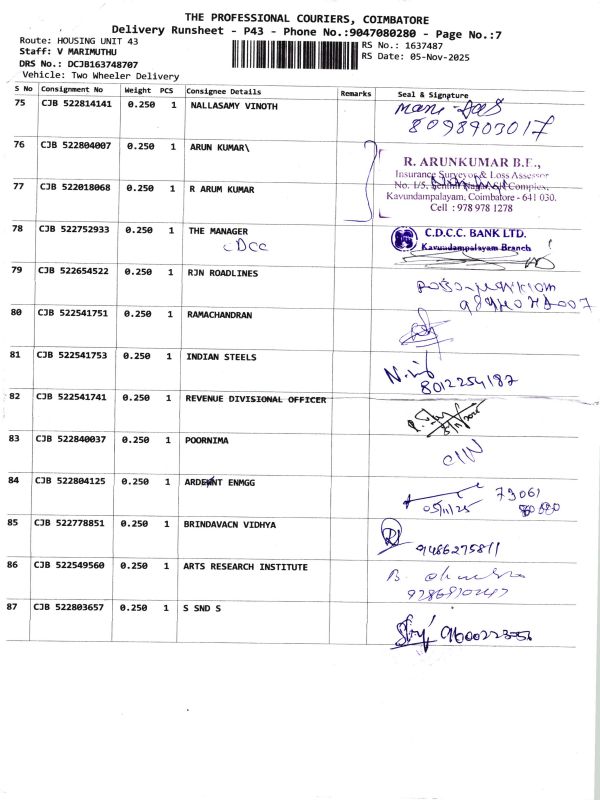 THE PROFESSIONAL COURIERS, COIMBATORE
Delivery Runsheet - P43 - Phone No.:9047080280 - Page No.:7
Route: HOUSING UNIT 43
RS No.: 1637487
Staff: V MARIMUTHU
RS Date: 05-Nov-2025
DRS No.: DCJB163748707
Vehicle: Two Wheeler Delivery
S No Consignment No Weight PCS Consignee Details Remarks Seal & Signature
75 CJB 522814141 0.250 1 NALLASAMY VINOTH
8098903017
76 CJB 522804007 0.250 1 ARUN KUMAR\
R. ARUNKUMAR B.E.,
Insurance Surveyor & Loss Assessor
77 CJB 522018068 0.250 1 R ARUM KUMAR
No. 1/5, Complex,
Kavundampalayam, Coimbatore - 641 030.
Cell : 978 978 1278
78 CJB 522752933 0.250 1 THE MANAGER
C.D.C.C. BANK LTD.
CDCC
Kavundampalayam Branch
79 CJB 522654522 0.250 1 RJN ROADLINES
80 CJB 522541751 0.250 1 RAMACHANDRAN
81 CJB 522541753 0.250 1 INDIAN STEELS
8012254187
82 CJB 522541741 0.250 1 REVENUE DIVISIONAL OFFICER
83 CJB 522840037 0.250 1 POORNIMA
84 CJB 522804125 0.250 1 ENMGG
05/11/25
85 CJB 522778851 0.250 1 BRINDAVACN VIDHYA
9486275811
86 CJB 522549560 0.250 1 ARTS RESEARCH INSTITUTE
B.
87 CJB 522803657 0.250 1 S SND S